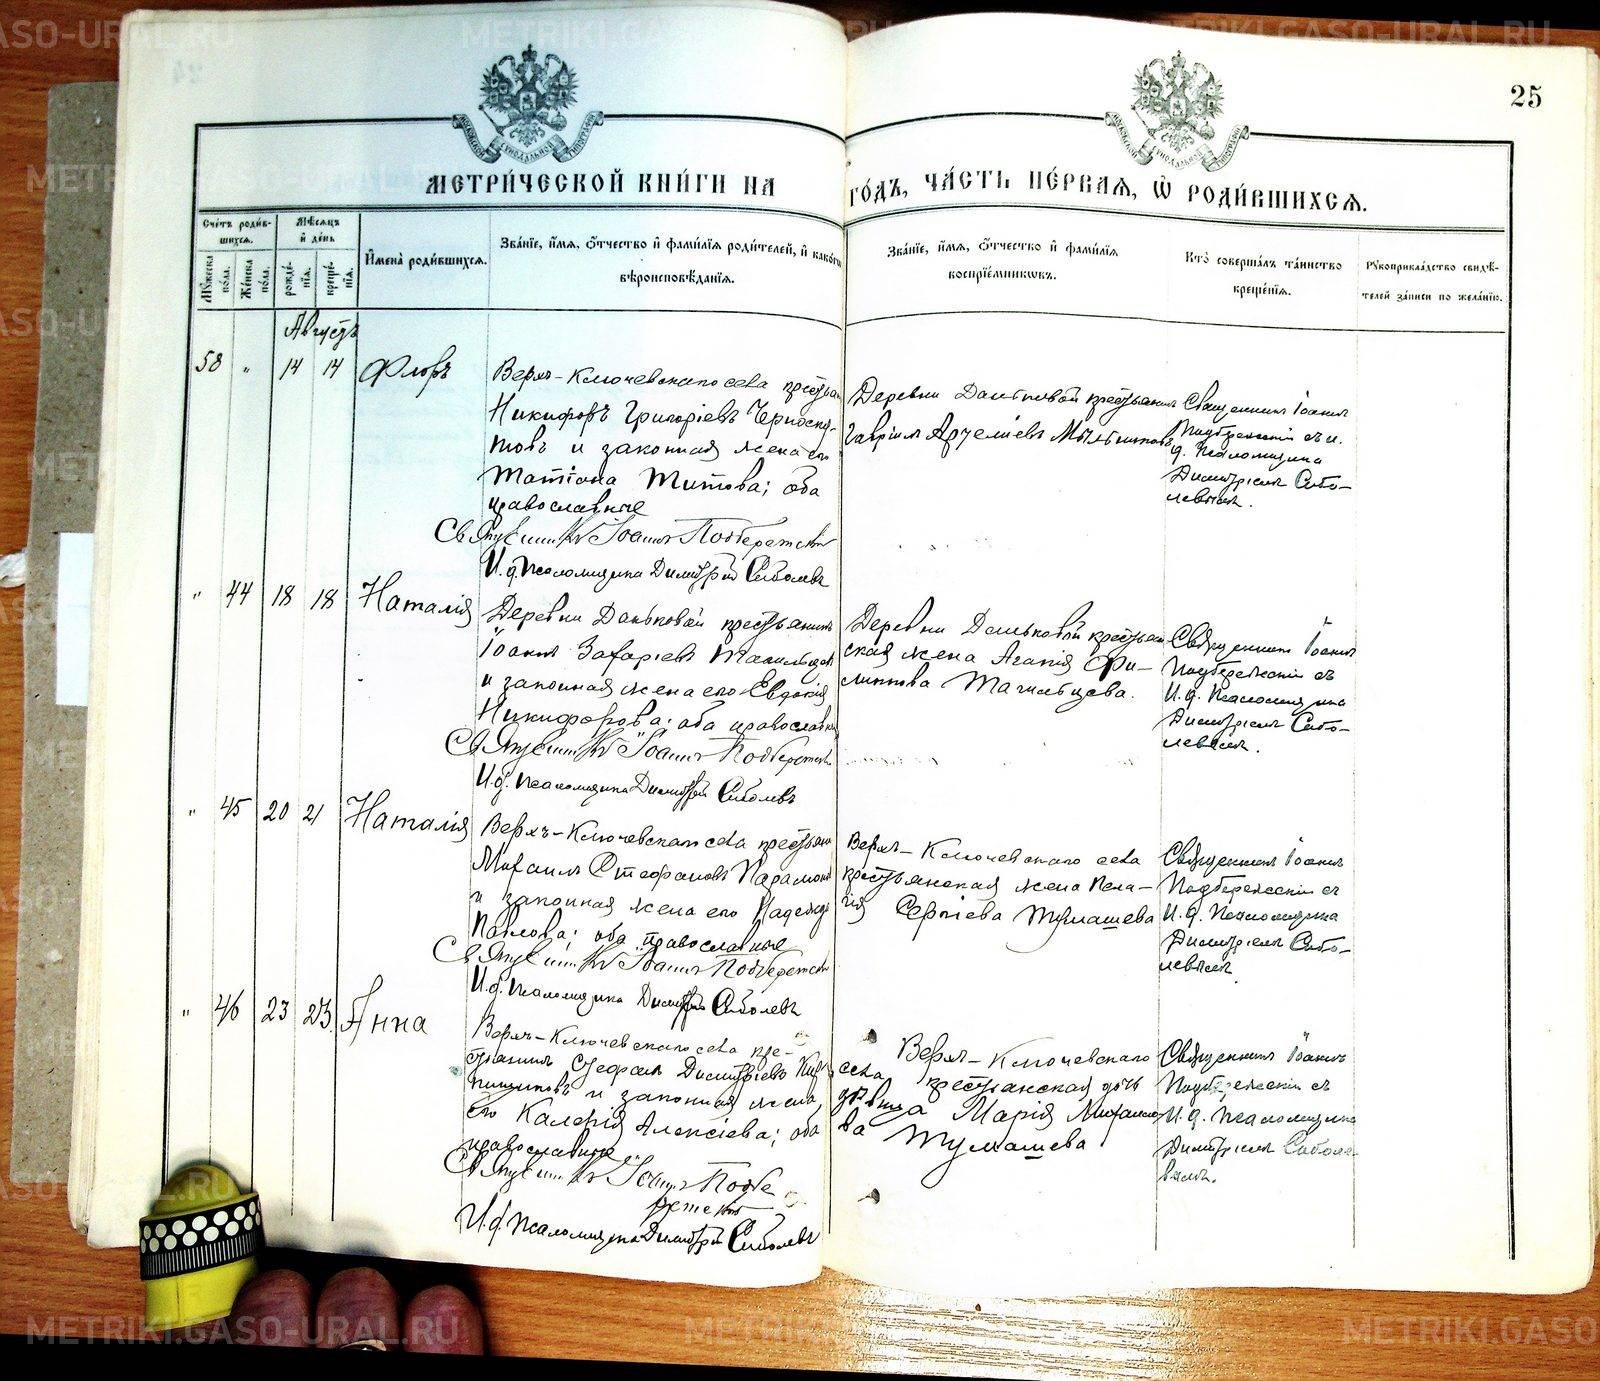 25
МЕТРИ́ЧЕСКОЙ КНИ́ГИ НА
ГО́ДЪ, ЧА́СТЬ ПЕ́РВАЯ, Ѿ РОДИ́ВШИХСЯ.
Сче́тъ роди́в-
шихся.
Мѣ́сяцъ
и҆ де́нь
Му́жеска
по́ла.
Же́нска
по́ла.
рожде́-
нїя.
креще́-
нїя.
И҆мена̀ роди́вшихся.
Зва́нїе, и҆́мя, ѻ҆́тчество и҆ фами́лїя роди́телей, и҆ како́гѡ
вѣроисповѣ́данїя.
Зва́нїе, и҆́мя, ѻ҆́тчество и҆ фами́лїя
воспрїе́мникѡвъ.
Кто̀ соверша́лъ та́инство
креще́нїя.
Рꙋкоприкла́дство свидѣ́-
телей за́писи по жела́нїю.
Августъ
58 " 14 14 Флоръ
Верхъ-Ключевскаго села крестьян
Никифоръ Григоріевъ Черноску-
товъ и законная жена его
Татіана Титова; оба
православные
Священникъ Іоаннъ Подбережскій
И. д. псаломщика Димитрій Соболевъ
Деревни Даньковой крестьянинъ
Гавріилъ
Священникъ Іоаннъ
Подбережскій съ и.
д. псаломщика
Димитріемъ Собо-
левымъ.
" 44 18 18 Наталія
Деревни Даньковой крестьянинъ
Іоаннъ Захаріевъ Тагильцев
и законная жена его Евдокія
Никифорова; оба православны
Священникъ Іоаннъ Подбережскій
И. д. псаломщика Димитрій Соболевъ
Деревни Даньковой крестьян
ская жена Агапія Фи-
липпова Тагильцева.
Священникъ Іоаннъ
Подбережскій съ
И. д. псаломщика
Димитріемъ Собо-
левымъ.
" 45 20 21 Наталія
Верхъ-Ключевскаго села крестьян
Михаилъ Стефановъ Парамон
и законная жена его Надежда
Павлова; оба православные
Священникъ Іоаннъ Подбережскій
И. д. псаломщика Димитрій Соболевъ
Верхъ-Ключевскаго села
крестьянская жена Пела-
гія Сергіева Тумашева
Священникъ Іоаннъ
Подбережскій съ
И. д. псаломщика
Димитріемъ Собо-
левымъ.
" 46 23 23 Анна
Верхъ-Ключевскаго села кре-
стьянинъ Стефанъ Димитріевъ Кир
пищиковъ и законная жена
его Калерія Алексіева; оба
православные
Священникъ Іоаннъ Подбе
режскій
И. д. псаломщика Димитрій Соболевъ
Верхъ-Ключевскаго
села крестьянская дочь
дѣвица Марія Михайло
ва Тумашева
Священникъ Іоаннъ
Подбережскій съ
И. д. псаломщика
Димитріемъ Соболе-
вымъ.
METRIKI.GASO-URAL.RU